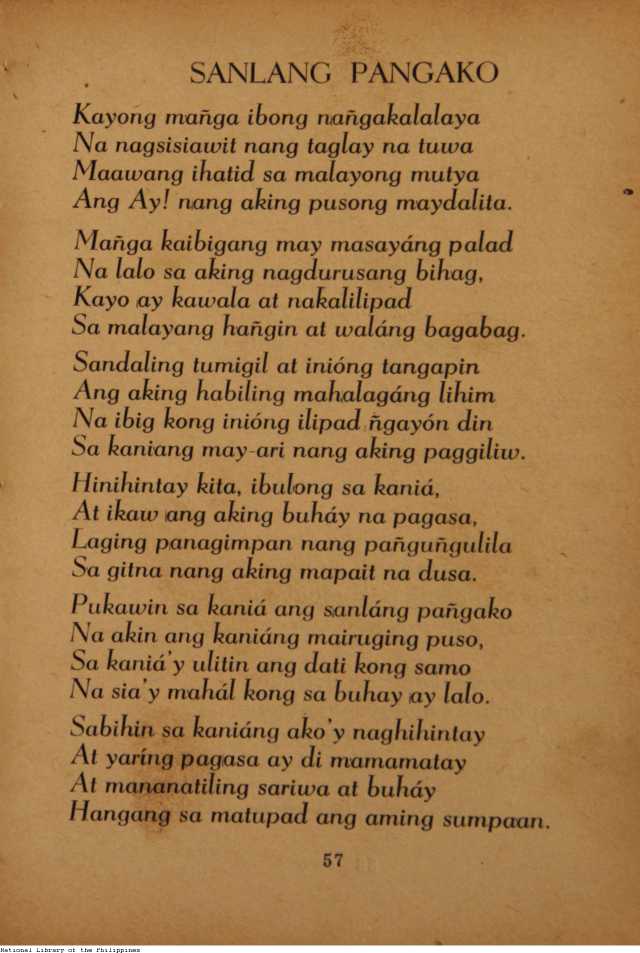 SANLANG PANGAKO
Kayong mañga ibong nañgakalalaya
Na nagsisiawit nang taglay na tuwa
Maawang ihatid sa malayong mutya
Ang Ay! nang aking pusong maydalita.
Mañga kaibigang may masayáng palad
Na lalo sa aking nagdurusang bihag,
Kayo ay kawala at nakalilipad
Sa malayang hañgin at waláng bagabag.
Sandaling tumigil at inióng tangapin
Ang aking habiling mahalagáng lihim
Na ibig kong inióng ilipad ñgayón din
Sa kaniang may-ari nang aking paggiliw.
Hinihintay kita, ibulong sa kaniá,
At ikaw ang aking buháy na pagasa,
Laging panagimpan nang pañguñgulila
Sa gitna nang aking mapait na dusa.
Pukawin sa kaniá ang sanláng pañgako
Na akin ang kaniáng mairuging puso,
Sa kaniá'y ulitin ang dati kong samo
Na sia'y mahál kong sa buhay ay lalo.
Sabihin sa kaniáng ako'y naghihintay
At yaríng pagasa ay di mamamatay
At mananatiling sariwa at buháy
Hangang sa matupad ang aming sumpaan.
57
National Library of the Philippines